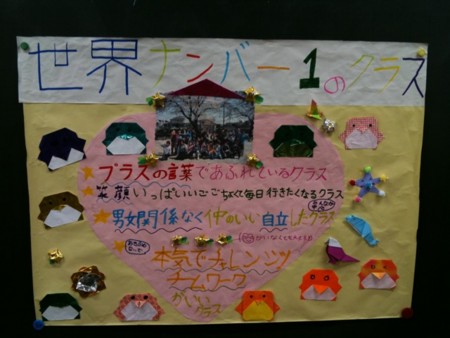 世界ナンバー1のクラス
プラスの言葉であふれているクラス
笑顔いっぱいいごこちよくて毎日行きたくなるクラス
男女関係なく仲のいい自立したクラス
本気でチャレンジ
チームワーク
がいい
クラス